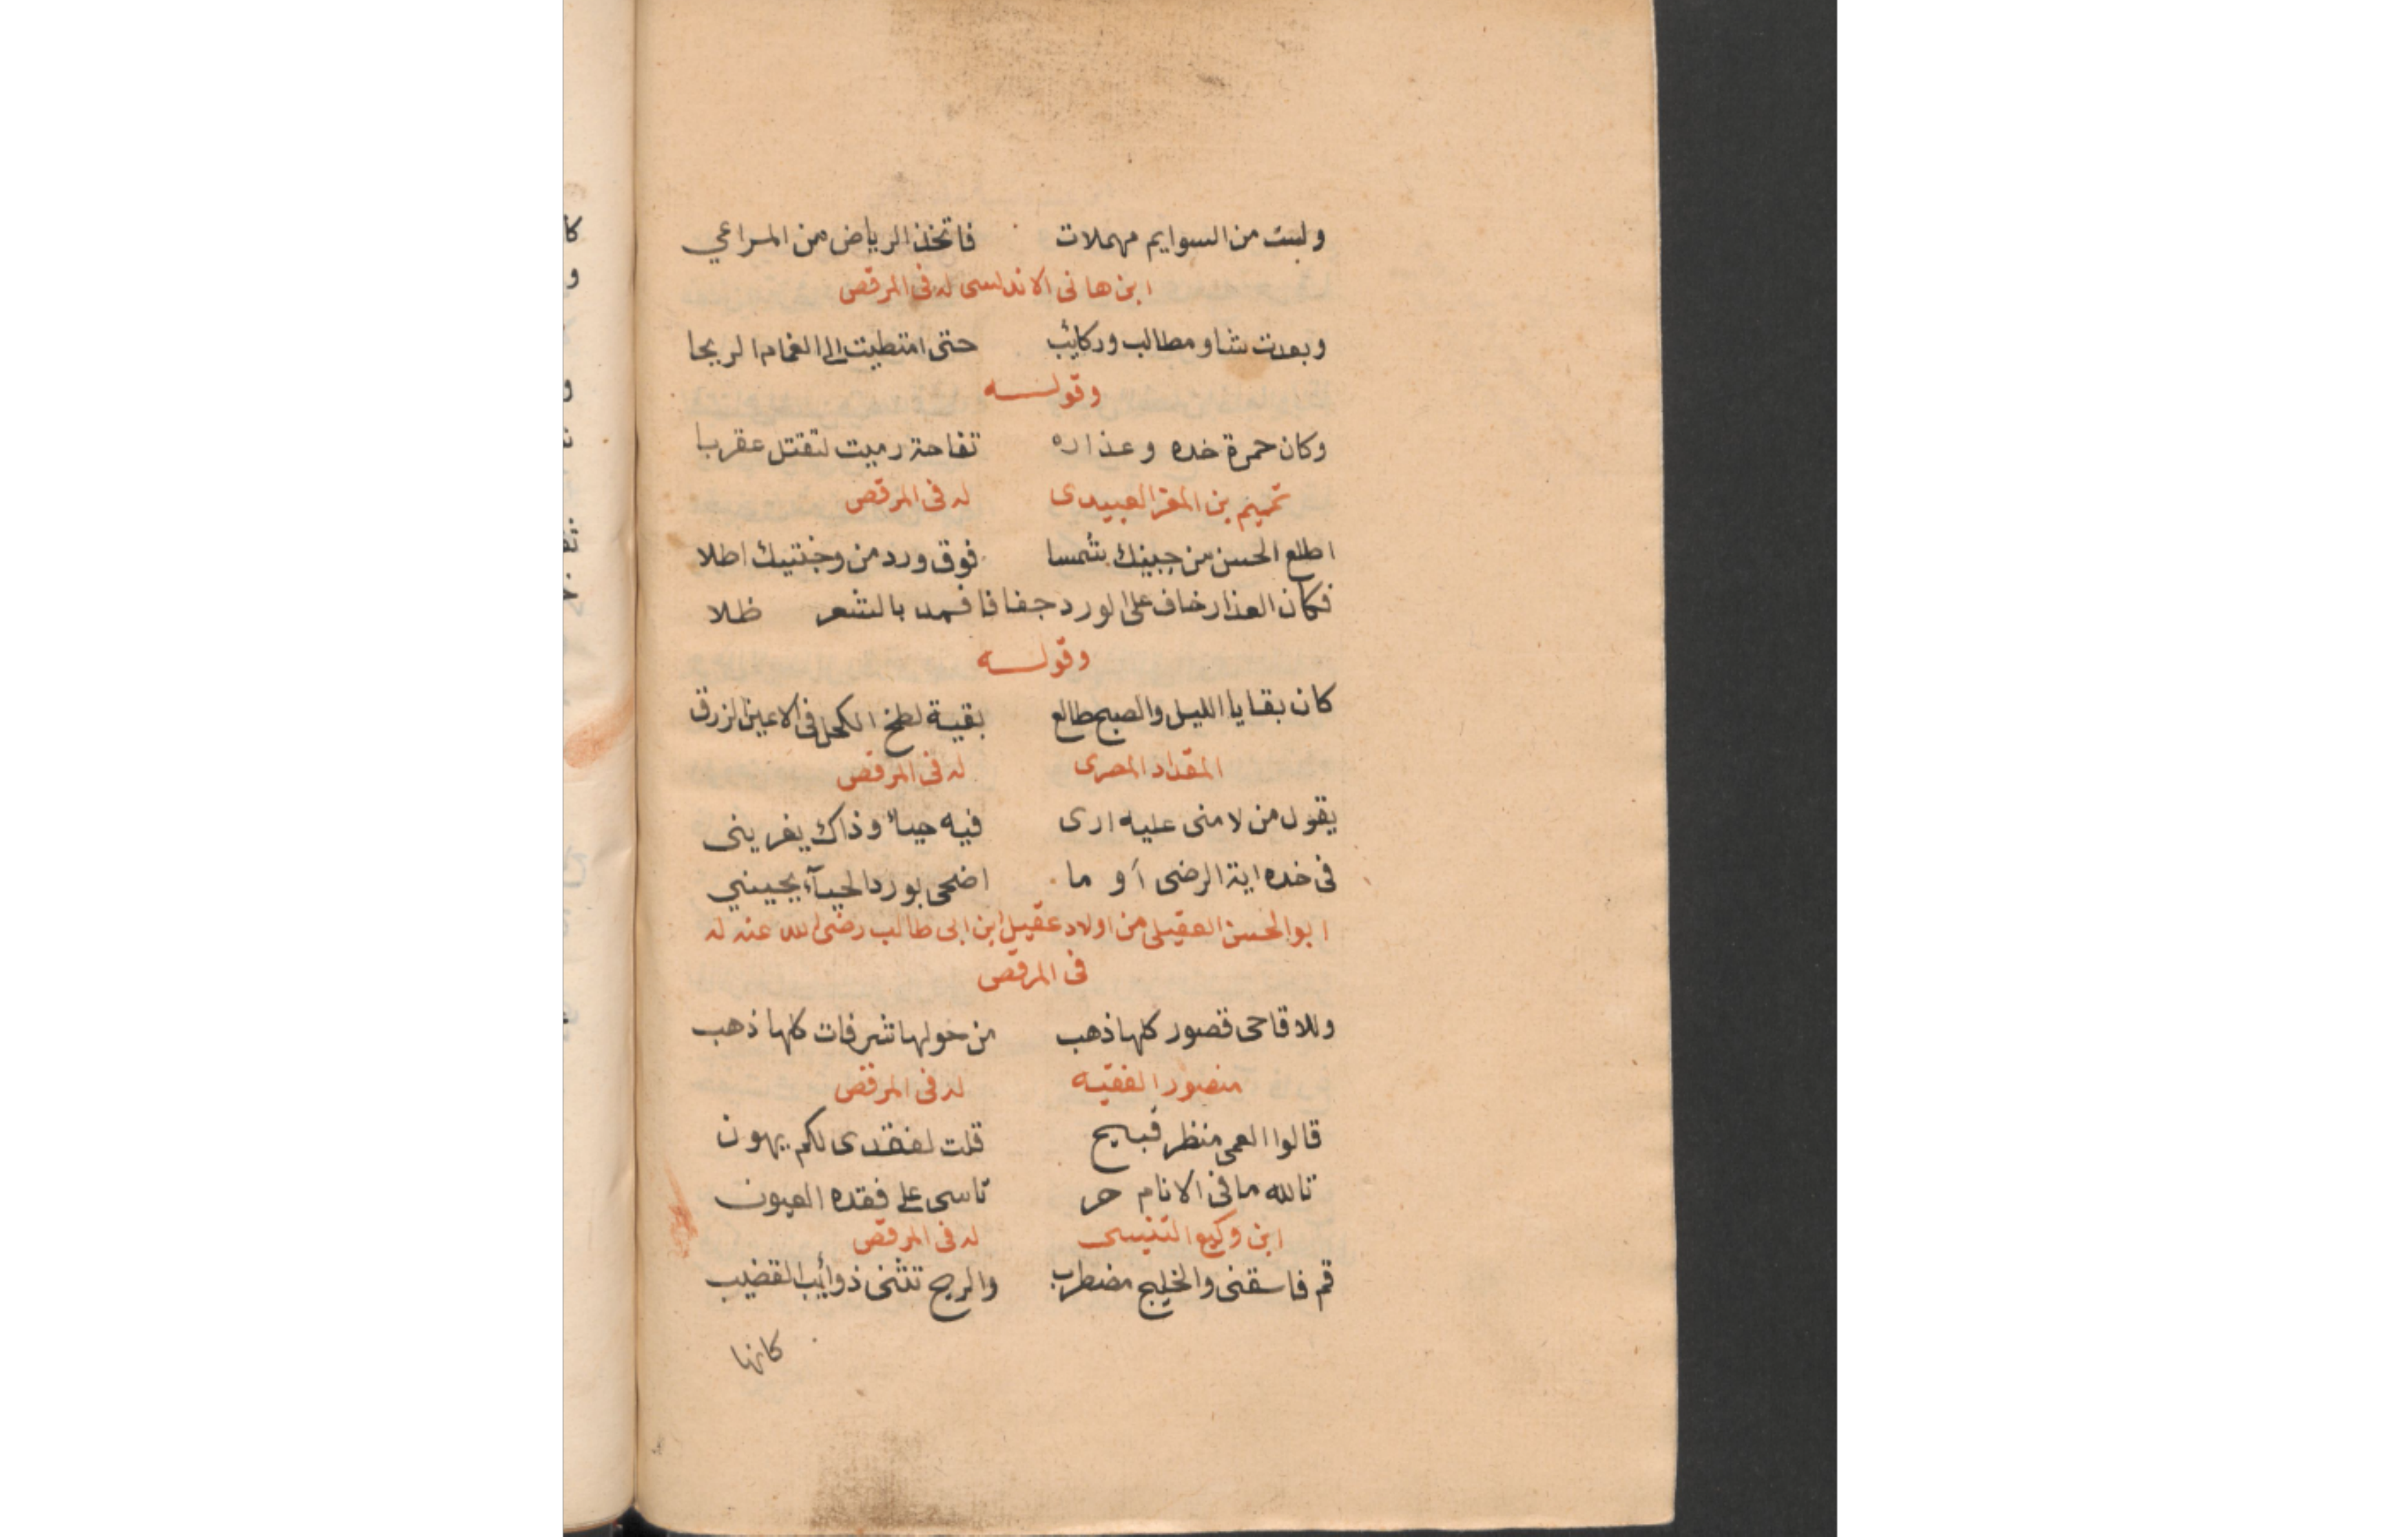 ولست من السوايم مهملات فاتخذ الرياض من المراعي
ابن هانى الاندلسى له فى المرقص
وبعدت شاو مطالب وركائب حتى امتطيت الى الغمام الريحا
وقولـــه
وكان حمرة خده وعذاره تفاحة رميت لتقتل عقربا
تميم بن المعز العبيدى له فى المرقص
اطلع الحسن من جبينك شمسا فوق ورد من وجنتيك اطلا
فكان العذار خاف على الورد جفافا فمد بالشعر ظلا
وقولـــه
كان بقايا الليل والصبح طالع بقية لطخ الكحل فى الاعين الزرق
المقداد المصرى له فى المرقص
يقول من لامنى عليه ارى فيه حياء وذاك يغرينى
فى خده اية الرضى أو ما اضحى بورد الحيآء يحييني
ابو الحسن العقيلى من اولاد عقيل ابن ابى طالب رضى الله عنه له
فى المرقص
وللاقاحى قصور كلها ذهب من حولها شرفات كلها ذهب
منصور الفقيه له فى المرقص
قالوا العمى منظر قبيح قلت لفقدى لكم يهون
تالله ما فى الانام حر تاسى على فقده العيون
ابن وكيع التنيسى له فى المرقص
قم فاسقنى والخليج مضطرب والريح تثنى ذوائب القضيب
كانها